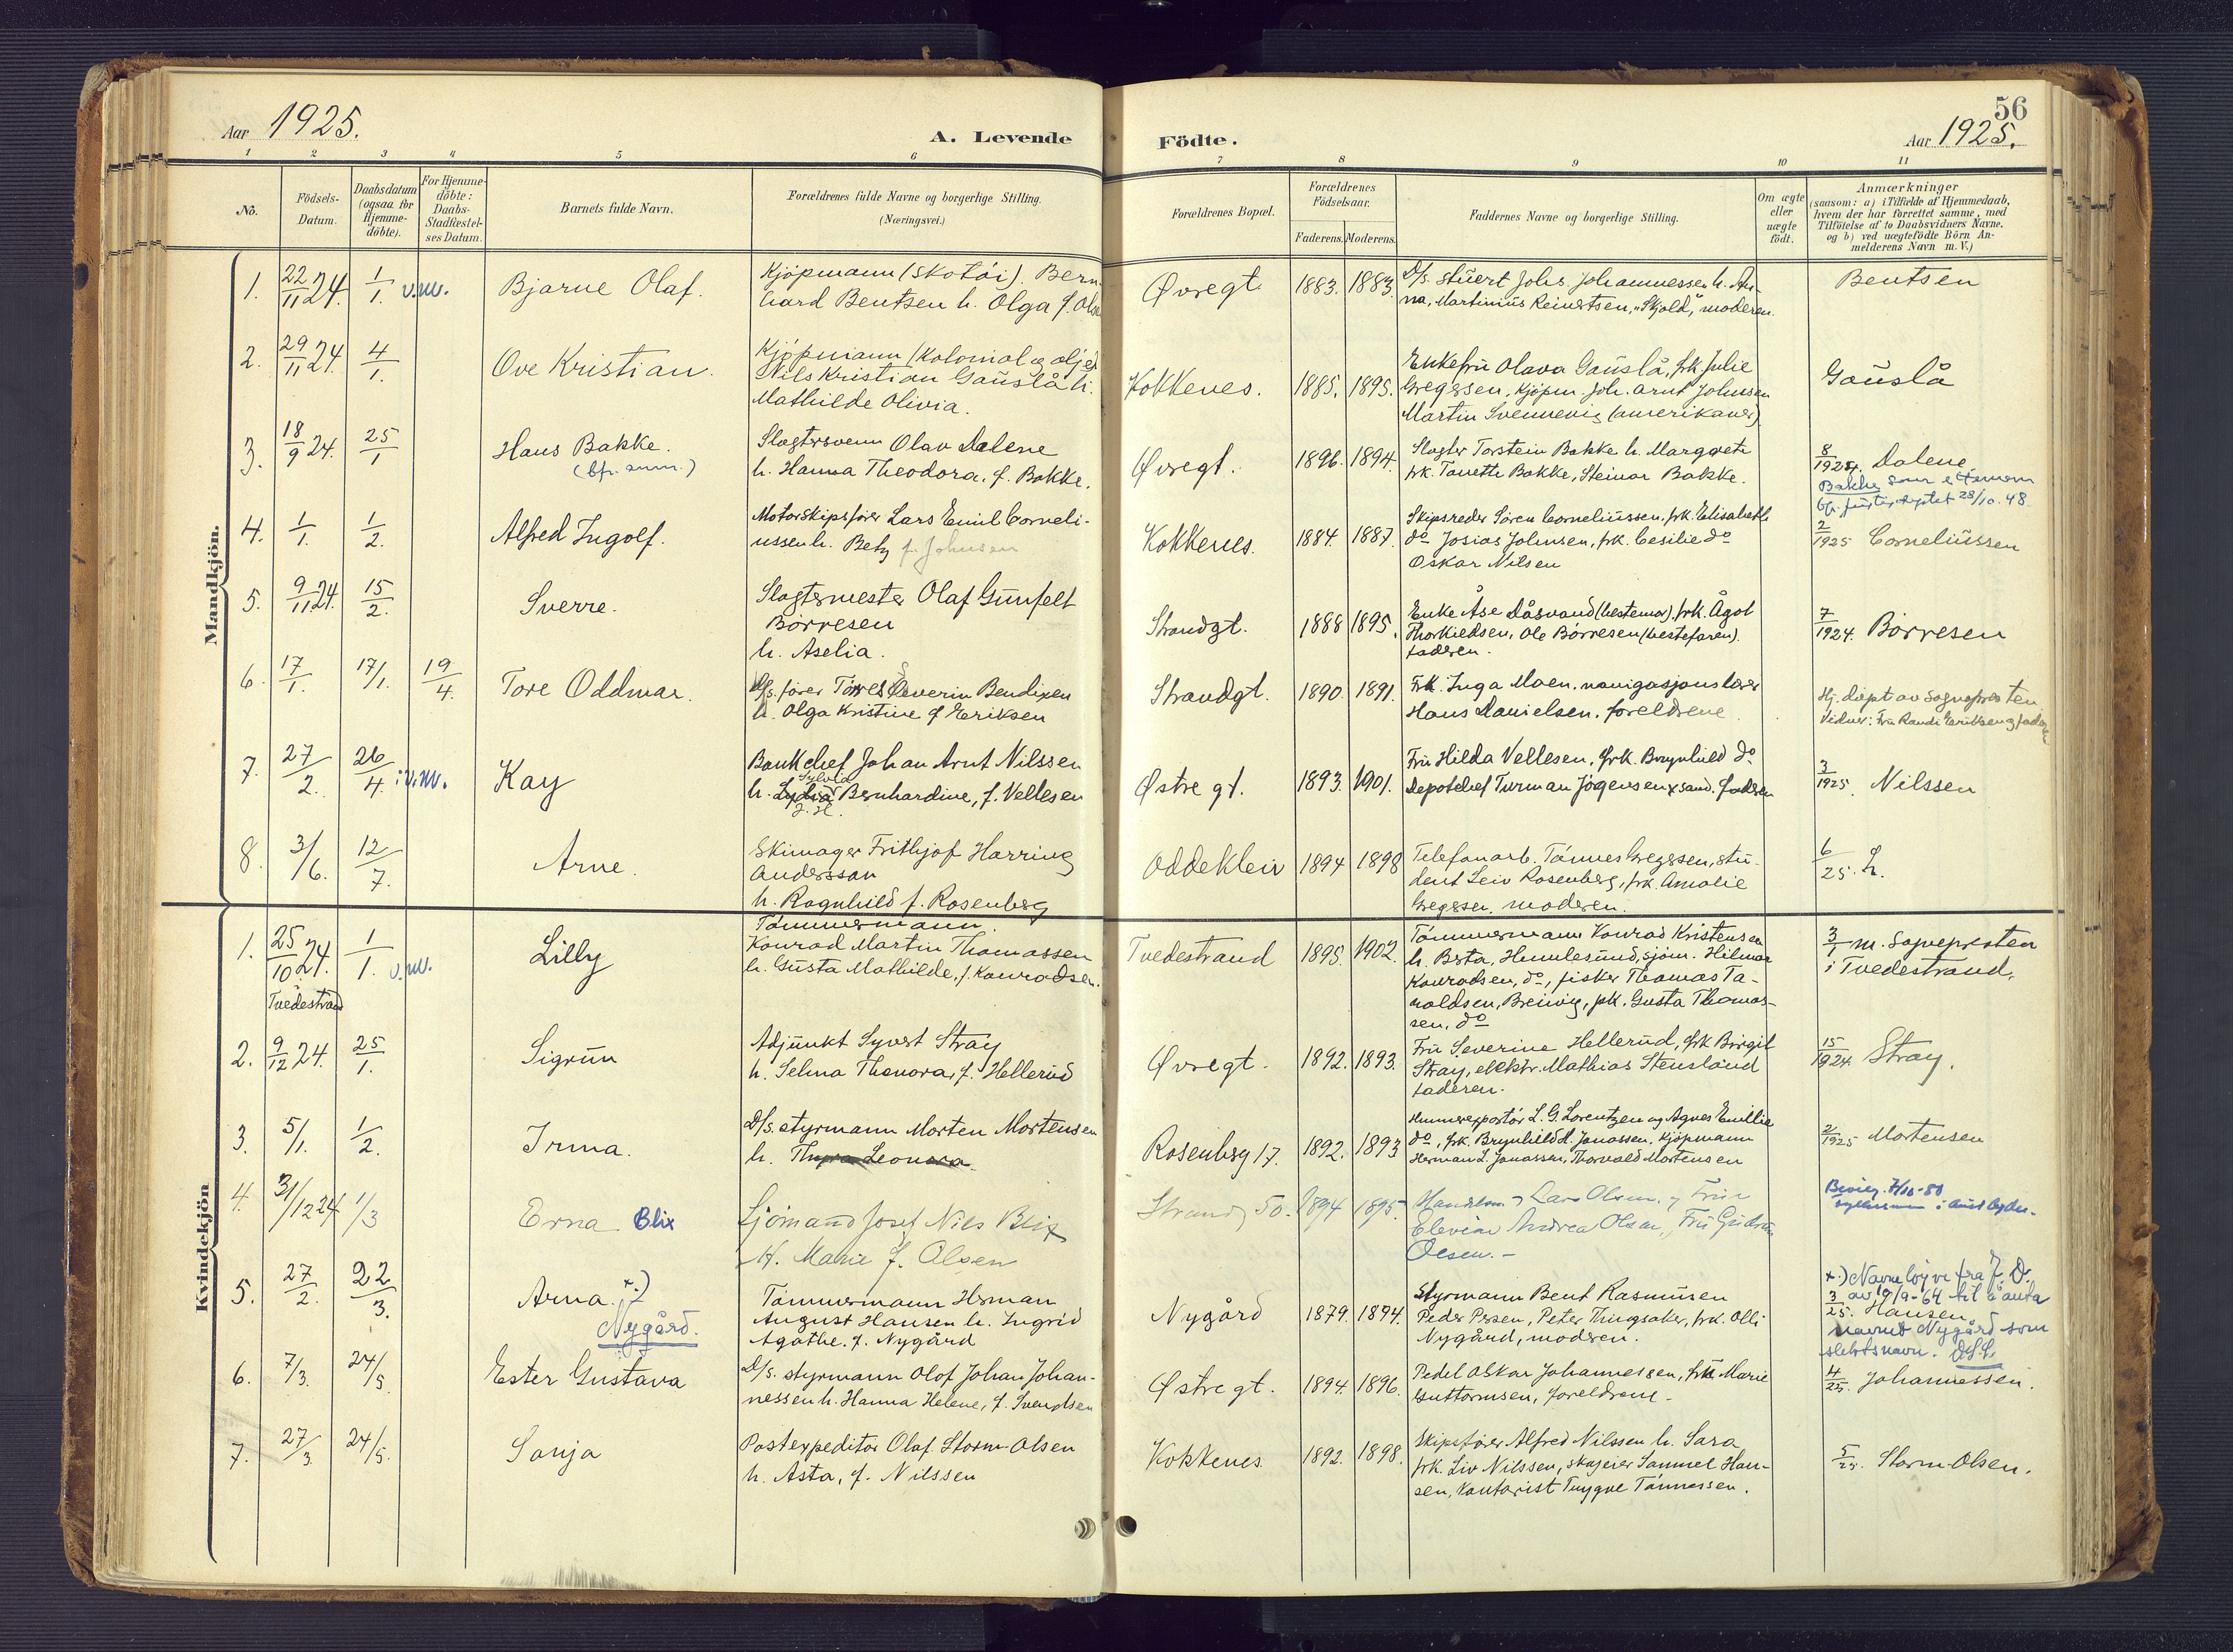 Aar 1925.
A. Levende
Födte.
56
Aar 1925.
1 2 3 4 5 6 7 8 9 10 11
No.
Födsels-
Datum.
Daabsdatum
(ogsaa for
Hjemme-
döbte).
For Hjemme-
döbte:
Daabs-
Stadfæstel-
ses Datum.
Barnets fulde Navn.
Forældrenes fulde Navne og borgerlige Stilling.
(Næringsvei.)
Forældrenes Bopæl.
Forældrenes
Födselsaar.
Faderens.
Moderens.
Faddernes Navne og borgerlige Stilling.
Om ægte
eller
uægte
födt.
Anmærkninger
(saasom: a) i Tilfælde af Hjemmedaab,
hvem der har forrettet samme, med
Tilföielse af to Daabsvidners Navne,
og b) ved uægtefödte Börn An-
melderens Navn m. V.)
Mandkjön.
1. 22/11 24. 1/1. v.nv.
Bjarne Olaf.
Kjøpmann (skotöi). Bern-
hard Bentsen h. Olga f. Olsen
Øvregt. 1883. 1883.
D/s. stuert Johs Johannessen h. An-
na, Martinius Reinertsen, "Skjold", moderen.
Bentsen
2. 29/11 24. 4/1.
Ove Kristian.
Kjøpmann (Kolonial og olje)
Nils Kristian Gauslå h.
Mathilde Olivia.
Kokkenes. 1885. 1895.
Enkefru Olava Gauslå, frk. Julie
Gregssen, Kjöpm. Joh. Arnt Johnsen
Martin Svennevig (amerikaner)
Gauslå
3. 18/9 24. 25/1
Hans Bakke.
(bfr. anm.)
Slagtersvenn Olav Dalene
h. Hanna Theodora, f. Bakke.
Øvregt. 1896. 1894.
Slagter Torstein Bakke h. Margrete
frk. Tanette Bakke, Steinar Bakke.
8/1924. Dalene
Bakke som etternavn
28/10.48
4. 1/1. 1/2.
Alfred Ingolf.
Motorskipsfører Lars Emil Corneli-
ussen h. Betz f. Johnsen
Kokkenes. 1884. 1887.
Skipsreder Sören Corneliussen. frk. Elisabeth
do Josias Johnsen, frk. Cesilie do
Oskar Nilsen
2/1925 Corneliussen
5. 9/11 24. 15/2.
Sverre.
Slagtermester Olaf Gunfelt
Börresen
h. Aselia.
Strandgt. 1888 1895.
Enke Åse Dåsvand (bestemor). frk. Ågot
Thorkildsen, Ole Börresen (bestefaren)
faderen.
7/1924. Börresen
6. 17/1. 17/1. 19/4.
Tore Oddmar.
D/s. fører Tørres Severin Bendixen
h. Olga Kristine f Eriksen
Strandgt. 1890. 1891.
Frk. Inga Moen. navigasjonslærer
Hans Danielsen. foreldrene
Hj. døpt av Sogneprosten
Vidner: Fru Randi Eriksen og faderen
7. 27/2. 26/4. v.nv.
Kay
Bankchef Johan Arnt Nilssen
Sylvia
h. Lydia Bernhardine, f. Vellesen
Østregt. 1893. 1901.
Fru Hilda Vellesen, frk. Brynhild do
Depotchef Turman Jörgensen x sand. faderen
3/1925. Nilssen
8. 3/6. 12/7.
Arne.
Skimager Frithjof Harring
Anderssen
h. Ragnhild f. Rosenberg
Oddekleiv 1894 1898
Telefonarb. Tönnes Gregssen, stu-
dent Leiv Rosenberg, frk. Amalie
Gregssen. moderen.
6/25. L.
Kvindekjön
1. 25/10 24. 1/1. v.nv.
Tvedestrand
Lilly
Tömmermann.
Konrad Martin Thomassen
h. Gusta Mathilde, f. Konradsen.
Tvedestrand 1895. 1902.
Tömmermann Konrad Kristensen
h. Berta, Humlesund, sjöm. Hilmar
Konradsen, do, fisker Thomas Ta-
raldsen, Breivig, frk. Gusta Thomas-
sen, do
3/1 m. Sogneprsten
i Tvedestrand.
2. 9/12 24. 25/1.
Sigrun
Adjunkt Syvert Stray
h. Selma Thonora, f. Hellerud
Øvregt. 1892. 1893.
Fru Severine Hellerud, frk Birgit
Stray, elektr. Mathias Stensland
faderen.
15/1924. Stray.
3. 5/1. 1/2.
Irma.
D/s. styrmann Morten Mortensen
h. Thyra Leonora
Rosenberg 17. 1892. 1893
Hummerexportör L. G. Lorentzen og Agnes Emilie
do, frk. Brynhild d. Jonassen, kjöpmann
Herman L. Jonassen, Thorvald Mortensen
2/1925 Mortensen
4. 31/12 24 1/3
Erna Blix
Sjömand Josef Nils Blix
H. Marie f. Olsen
Strandg 50. 1894 1895.
Lars Olsen. og Frue
Elevine Andrea Olsen, Fru Gudrun
Olsen. –
5. 27/2. 22/3.
Arna. x)
Nygård.
Tömmermann Herman
August Hansen h. Ingrid
Agathe. f. Nygård
Nygård 1879. 1894.
Styrmann Bent Rasmussen
Peder Persen, Peter Thingsaker, frk. Olli
Nygård, moderen.
x.) Navneløyve fra J. D.
av 19/9-64 til å anta
3/25. Hansen
navnet Nygård som
slektsnavn.
6. 7/3. 24/5.
Ester Gustava
D/s. styrmann Olof Johan Johan-
nessen h. Hanna Helene, f. Svendsen
Østregt. 1894. 1896.
Pedel Oskar Johannessen, frk Marie
Guttormsen, foreldrene.
4/25. Johannessen.
7. 27/3 24/5.
Sonja
Postexpeditör Olaf Storm-Olsen
h. Asta, f. Nilssen
Kokkenes 1892. 1898.
Skipsfører Alfred Nilssen h. Sara
frk. Liv Nilssen, skogeier Samuel Han-
sen, kontorist Trygve Tönnessen.
5/25. Storm-Olsen.